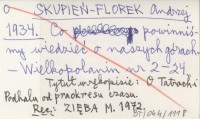 O SKUPIEŃ-FLOREK Andrzej
1934. Co powinniś-
my wiedzieć o naszych górach.
– Wielkopolanin nr 2-24.
Tytuł wyjściowy: O Tatrach i
Podhalu od praokresu czasu.
Rec: ZIĘBA M. 1972.
BT/044/1118